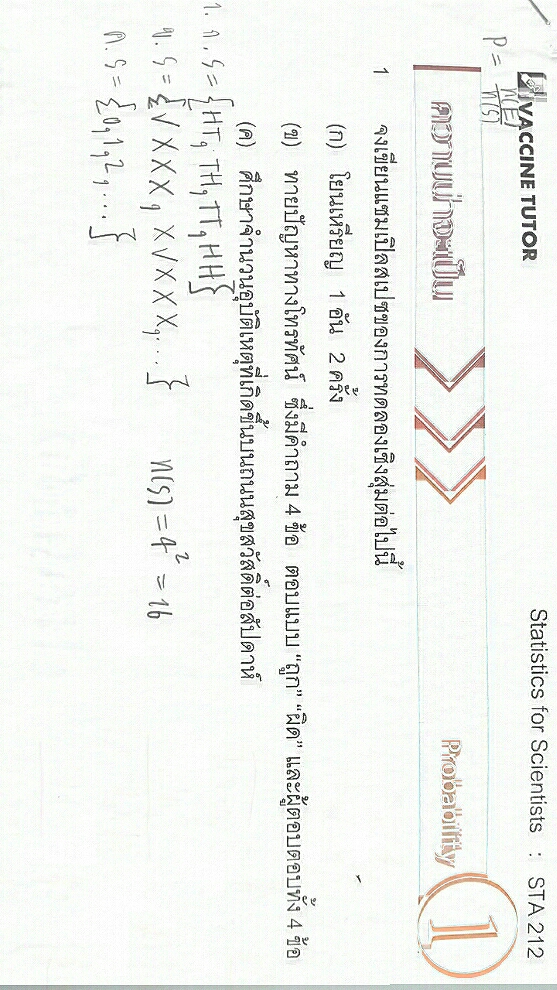 VACCINE TUTOR
Statistics for Scientists : STA 212
P = n(E)/n(S)
ความน่าจะเป็น
Probability
1
1 จงเขียนแซมเปิลสเปซของการทดลองเชิงสุ่มต่อไปนี้
(ก) โยนเหรียญ 1 อัน 2 ครั้ง
(ข) ทายปัญหาทางโทรทัศน์ ซึ่งมีคำถาม 4 ข้อ ตอบแบบ “ถูก” “ผิด” และผู้ตอบตอบทั้ง 4 ข้อ
(ค) ศึกษาจำนวนอุบัติเหตุที่เกิดขึ้นบนถนนสุขสวัสดิ์ต่อสัปดาห์
1. ก. S = {HT, TH, TT, HH}
ข. S = {√XXX, X√XXX, ...} n(S) = 4² = 16
ค. S = {0, 1, 2, ...}